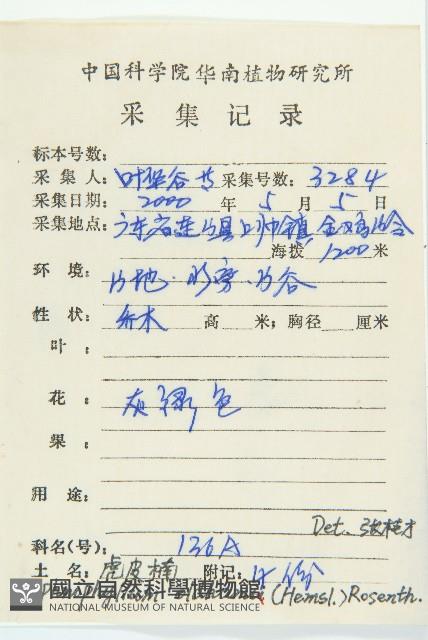 中国科学院华南植物研究所
采集记录
标本号数:
采集人: 叶华谷 等 采集号数: 3284
采集日期: 2000 年 5 月 5 日
采集地点: 广东省连山县上帅镇
海拨 1200 米
环境: 山地·路旁·山谷
性状: 乔木 高 米; 胸径 厘米
叶:
花: 灰绿色
果:
用途:
Det. 张桂才
科名(号): 136A
土名: 虎皮楠 附记: 4份
(Hemsl.) Rosenth.
國立自然科學博物館
NATIONAL MUSEUM OF NATURAL SCIENCE